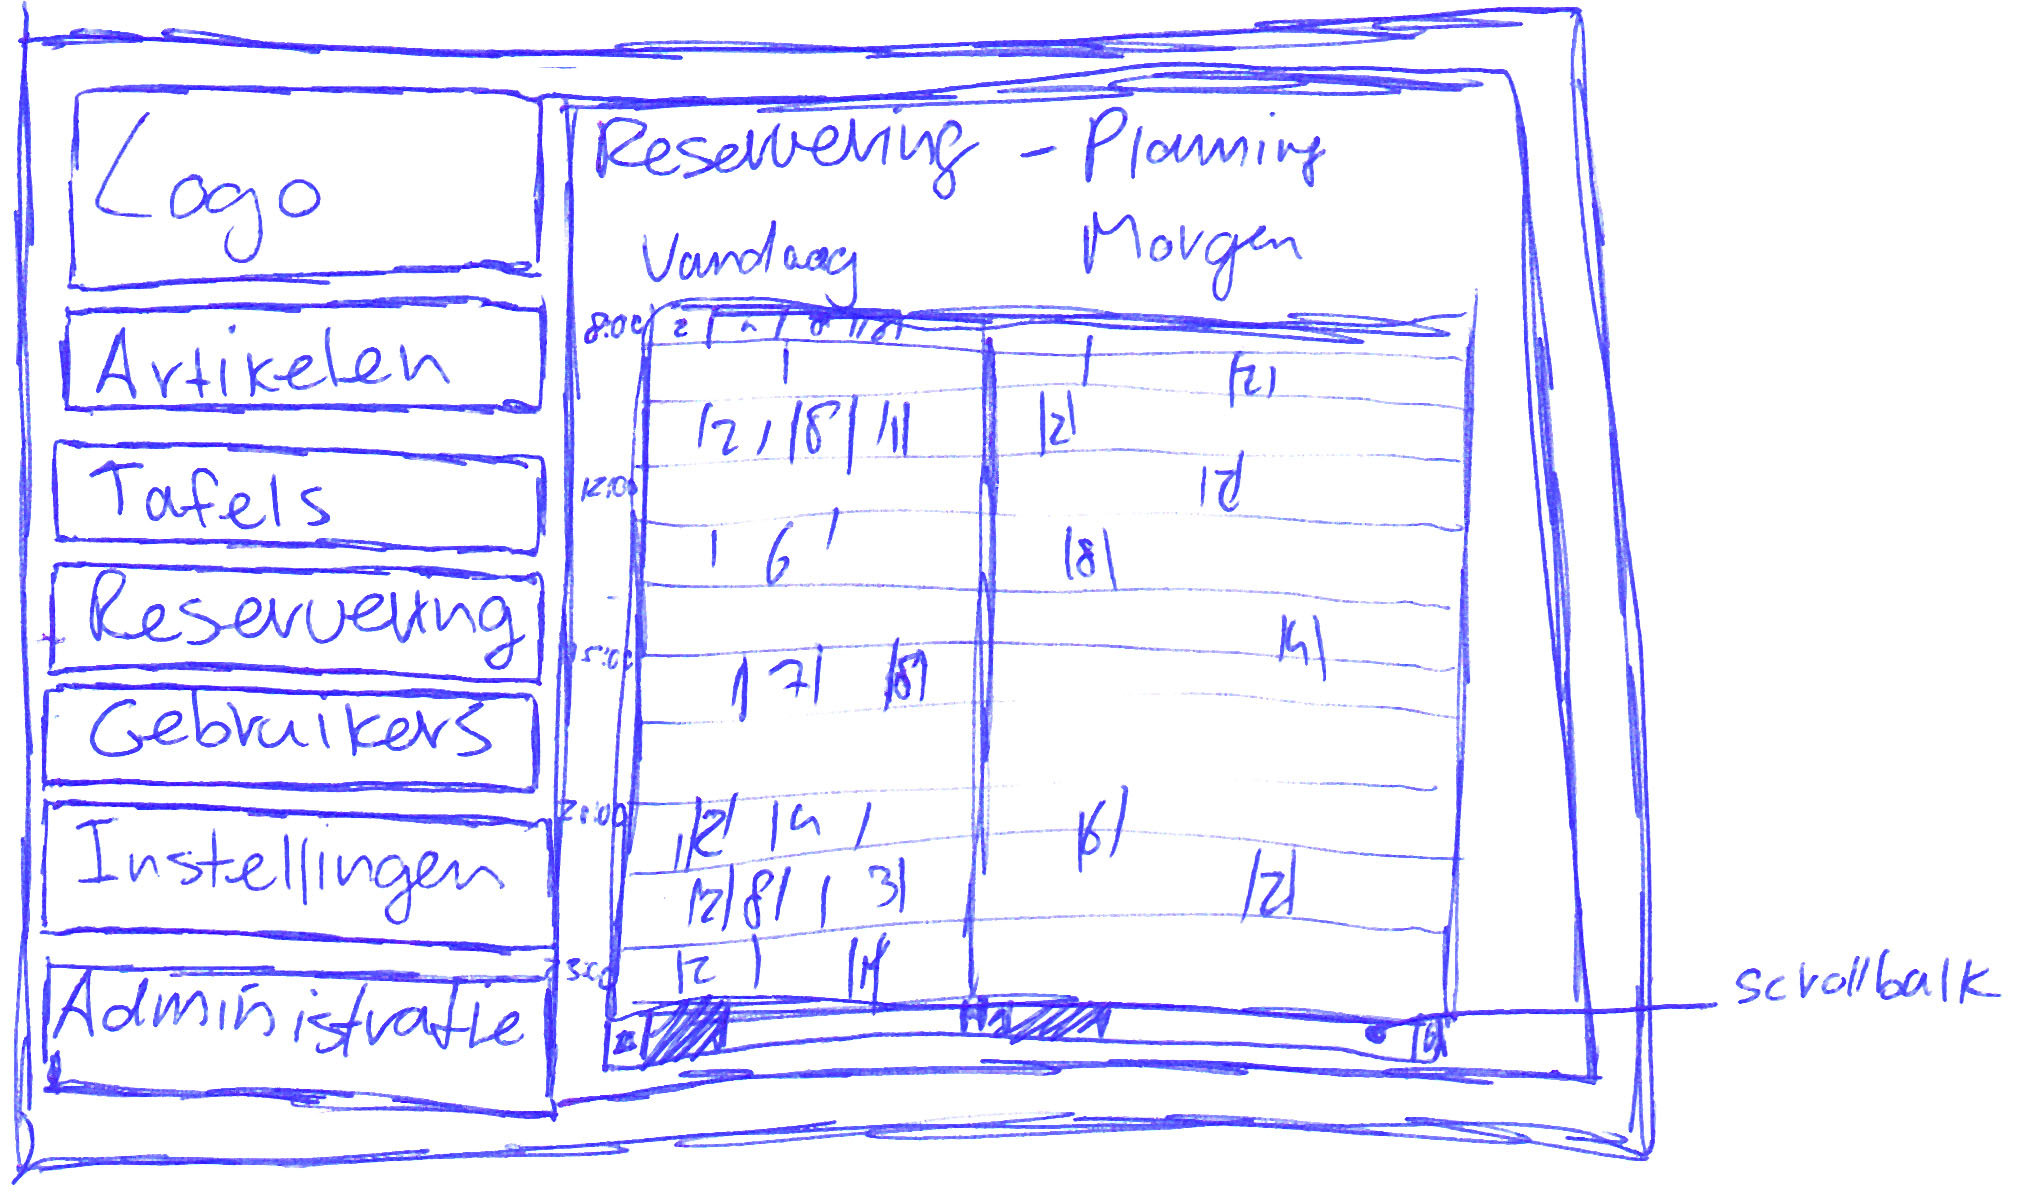 Logo
Artikelen
Tafels
Reservering
Gebruikers
Instellingen
Administratie
Reservering - Planning
Vandaag Morgen
8:00 2
|2|
|2 , |8| 2|
12:00
6 |8|
15:00
7| |8|
20:00 |2| 6|
|2|8| 3| |2|
|2
scrollbalk